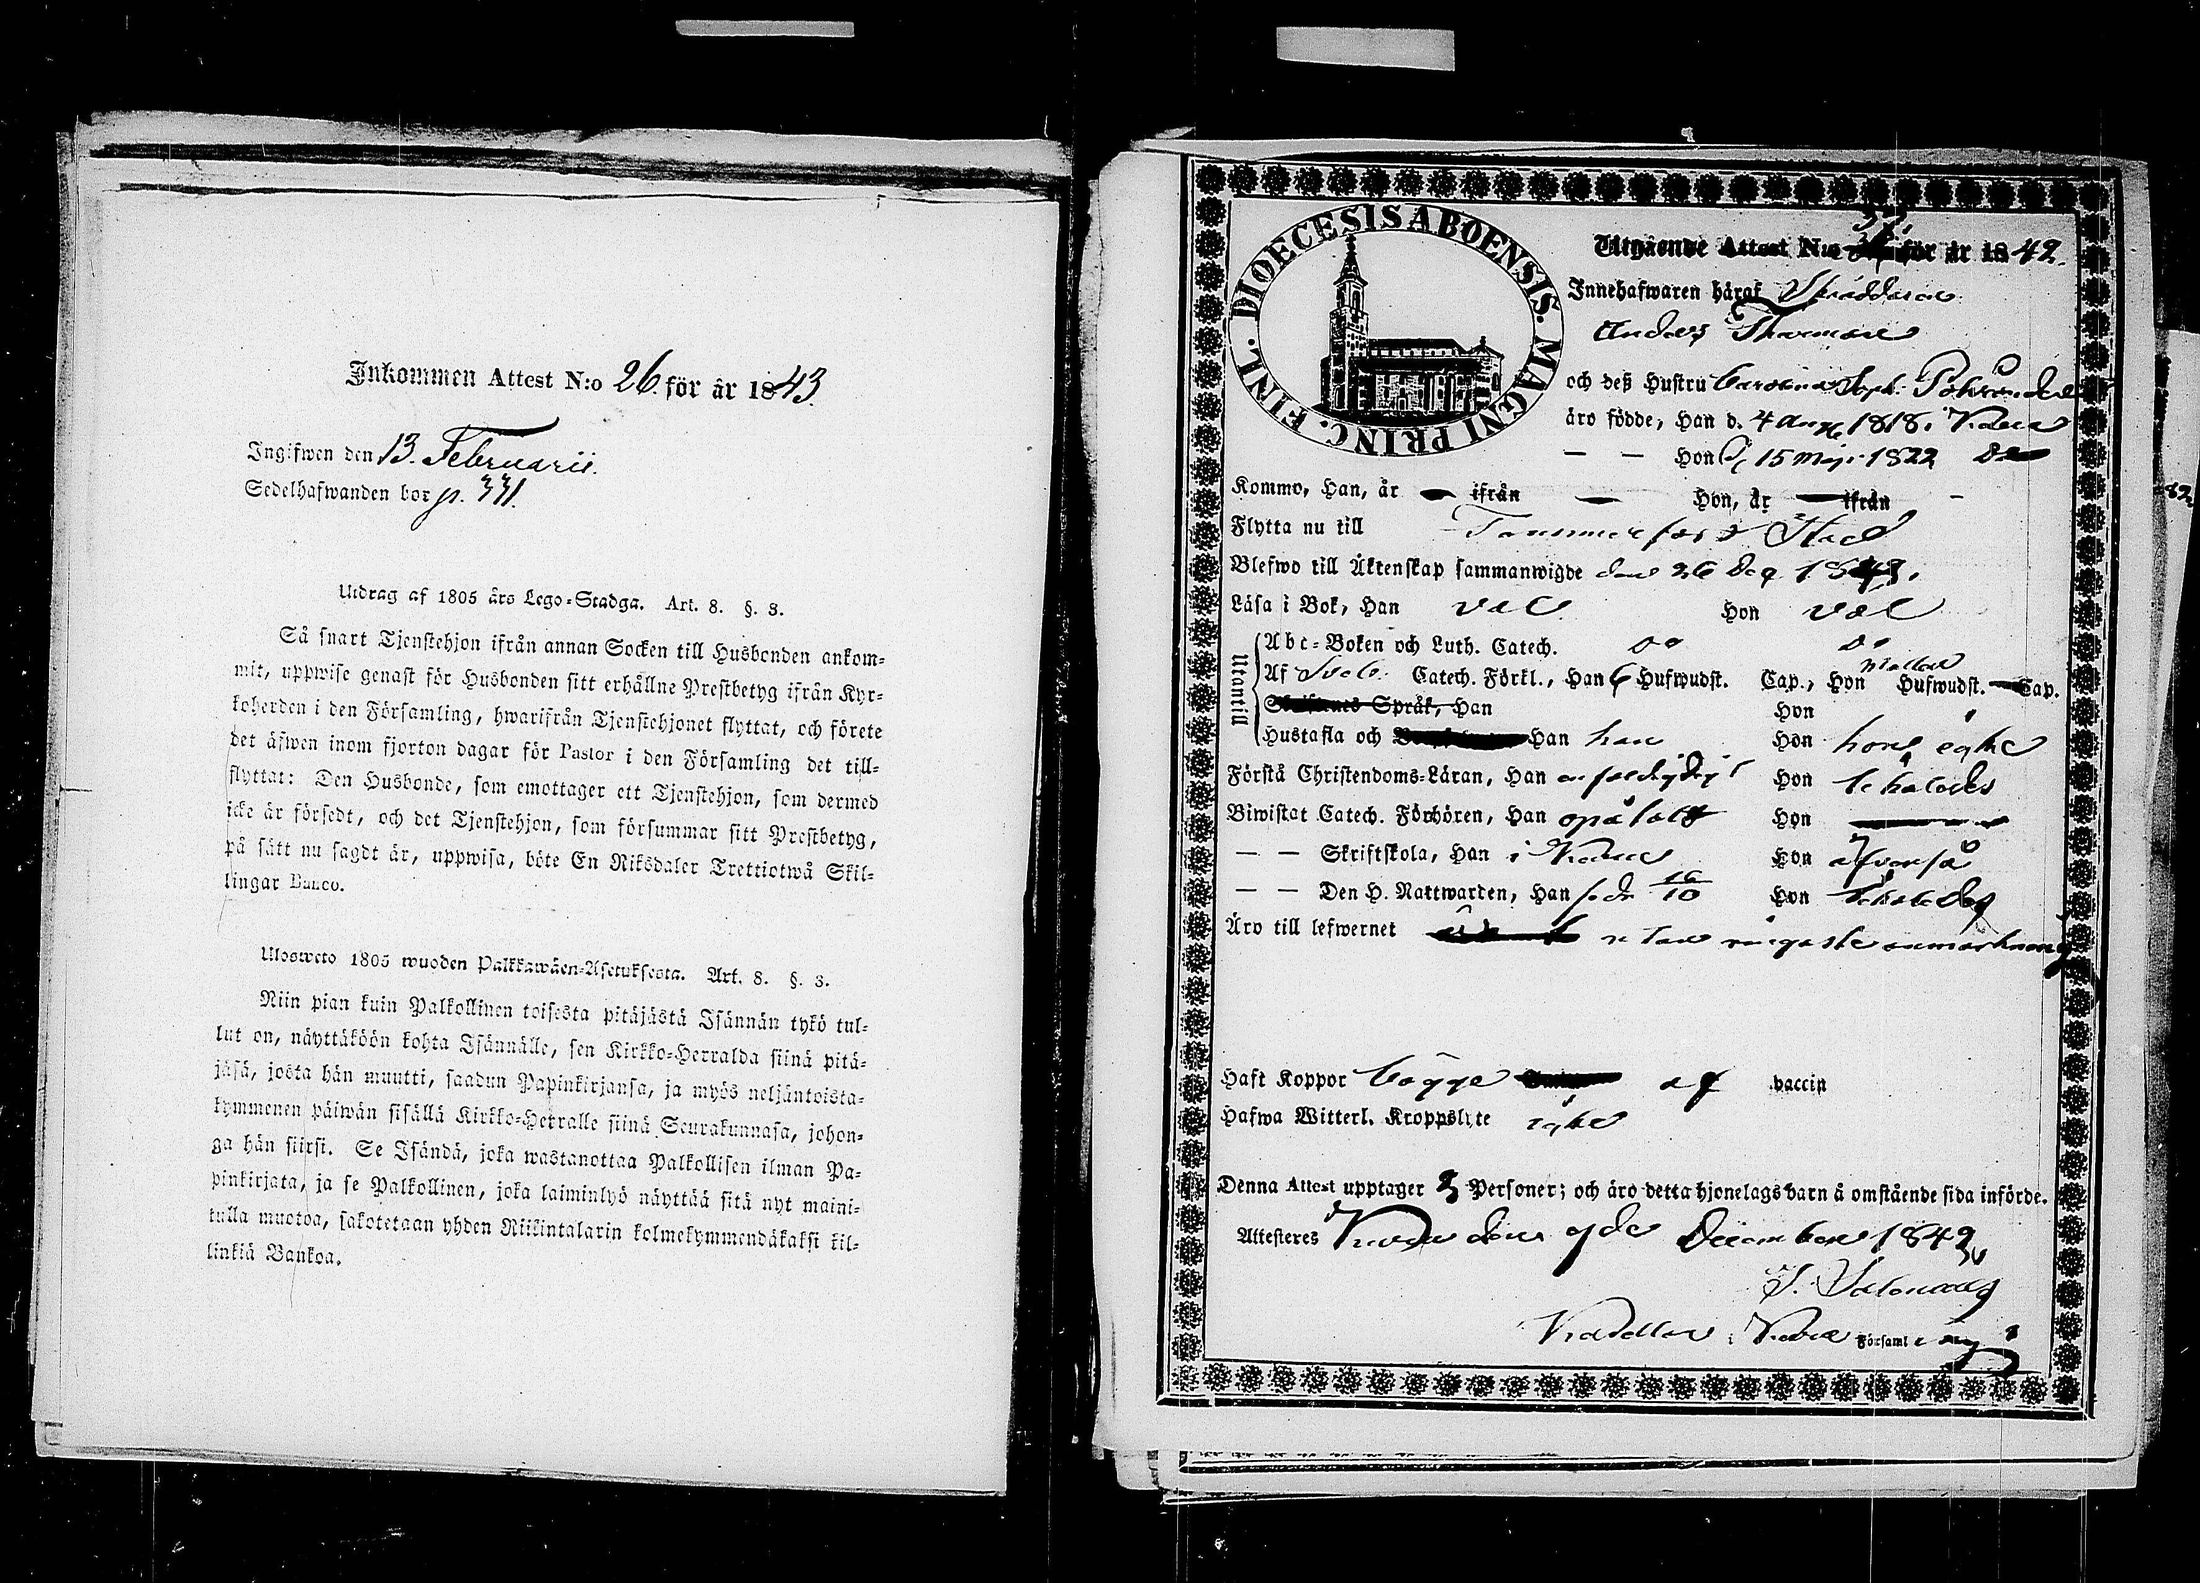 Inkommen Attest N:o 26. för år 1843.
Ingifwen den 13. Februarii.
Sedelhafwanden bor p. 331.
Utdrag af 1805 års Lego-Stadga. Art. 8. §. 3.
Så snart Tjenstehjon ifrån annan Socken till Husbonden ankom-
mit, uppwise genast för Husbonden sitt erhållne Prestbetyg ifrån Kyr-
koherden i den Församling, hwarifrån Tjenstehjonet flyttat, och förete
det äfwen inom fjorton dagar för Pastor i den Församling det till-
flyttat: Den Husbonde, som emottager ett Tjenstehjon, som dermed
icke är försedt, och det Tjenstehjon, som försummar sitt Prestbetyg,
på sätt nu sagdt är, uppwisa, böte En Riksdaler Trettiotwå Skil-
lingar Banco.
Ulosweto 1805 wuoden Palkkawäen-Asetuksesta. Art. 8. §. 3.
Niin pian kuin Palkollinen toisesta pitäjästä Isännän tykö tul-
lut on, näyttäköön kohta Isännälle, sen Kirkko-Herralda siinä pitä-
jäsä, josta hän muutti, saadun Papinkirjansa, ja myös neljäntoista-
kymmenen päiwän sisällä Kirkko-Herralle siinä Seurakunnasa, johon-
ga hän siirsi. Se Isändä, joka wastanottaa Palkollisen ilman Pa-
pinkirjata, ja se Palkollinen, joka laiminlyö näyttää sitä nyt maini-
tulla muotoa, sakotetaan yhden Riikintalarin kolmekymmendäkaksi kil-
linkiä Bankoa.
DIOECESIS ABOENSIS. MAGNI PRINC. FINL.
Utgående Attest N:o för år 1842.
Innehafwaren häraf Skräddaren
Anders Thorman
och deß Hustru Carolina Soph.
äro födde, Han d. 4 Aug 1818 i
— — Hon d. 15 Maji 1822 Do
Kommo, Han, år — ifrån — Hon, år — ifrån —
Flytta nu till Tammerfors Stad
Blefwo till Äktenskap sammanwigde den 26 Dec 184
Läsa i Bok, Han väl Hon väl
Utantill
Abc-Boken och Luth. Catech. Do Do
Af Sveb. Catech. Förkl., Han 6 Hufwudst. Cap., Hon Hufwudst. Cap.
Språk, Han Hon
Hustafla och Han han Hon hon
Förstå Christendoms-Läran, Han Hon
Biwistat Catech. Förhören, Han Hon
— — Skriftskola, Han i Hon äfvenså
— — Den H. Nattwarden, Han 16/10 Hon
Äro till lefwernet utan ringaste anmärkning
Haft Koppor Bägge af vaccin
Hafwa Witterl. Kroppslyte
Denna Attest upptager Personer; och äro detta hjonelags barn å omstående sida införde.
Attesteres den 9de December 1842
i Församl ing